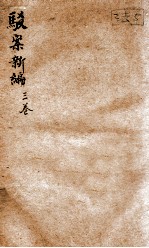 駁案新編 三卷